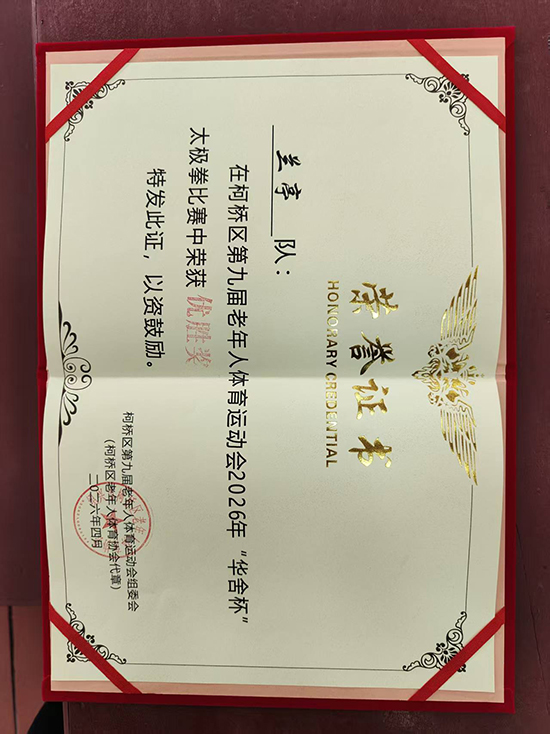 荣誉证书
HONORARY CREDENTIAL
兰亭 队：
在柯桥区第九届老年人体育运动会2026年“华舍杯”
太极拳比赛中荣获 优胜奖
特发此证，以资鼓励。
柯桥区第九届老年人体育运动会组委会
(柯桥区老年人体育协会代章)
二〇二六年四月